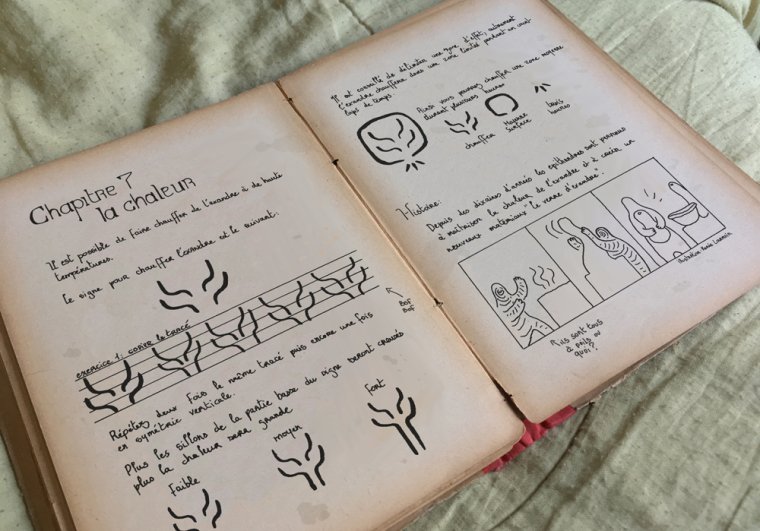 Chapitre 7
la chaleur
Il est possible de faire chauffer de l'exandre à de haute
températures.
Le signe pour chauffer l'exandre est le suivant:
exercice 1: copier le tracé
Bof
Bof
Répétez deux fois le même tracé puis encore une fois
en symétrie verticale.
Plus les sillons de la partie basse du signe seront creusés
plus la chaleur sera grande
Faible
moyen
Fort
Il est conseillé de délimiter une zone d'effet, autrement
l'exandre chauffera dans une zone limitée pendant un court
laps de temps.
Ainsi vous pouvez chauffer une zone moyenne
durant plusieurs heures
chauffer
Moyenne
surface
trois
heures
Histoire:
Depuis des dizaines d'années les
sont parvenus
à maîtriser la chaleur de l'exandre et à créer un
nouveau matériaux le verre d'exandre".
Ils sont tous
à poils ou
quoi?